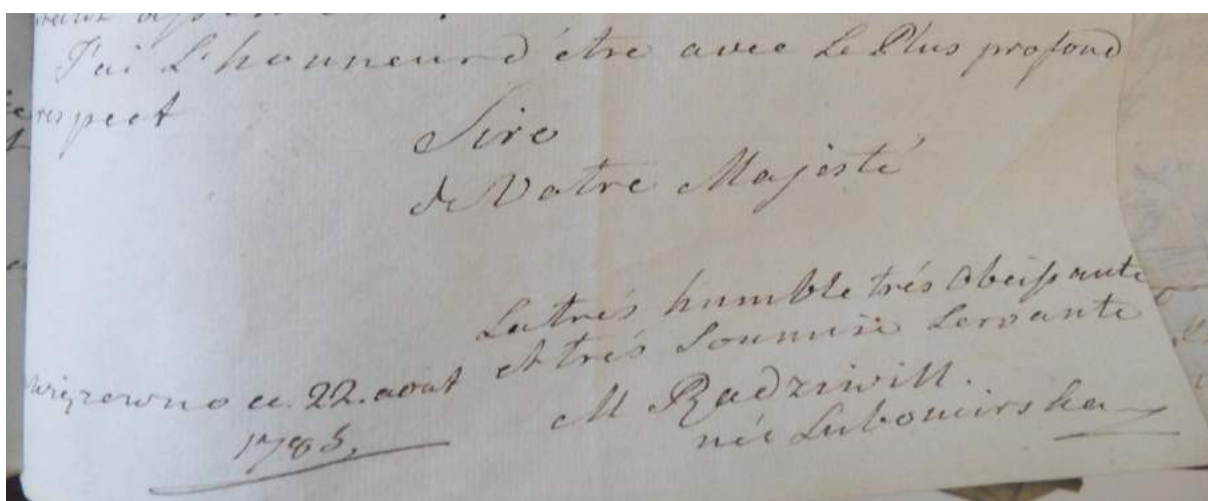 J'ai L'honneur d'étre avec Le Plus profond
respect
Sire
de Votre Majesté
La trés humble trés Obeissante
et trés Soumise Servante
ce. 22. aout
1785.
M Radziwill.
née Lubomirska